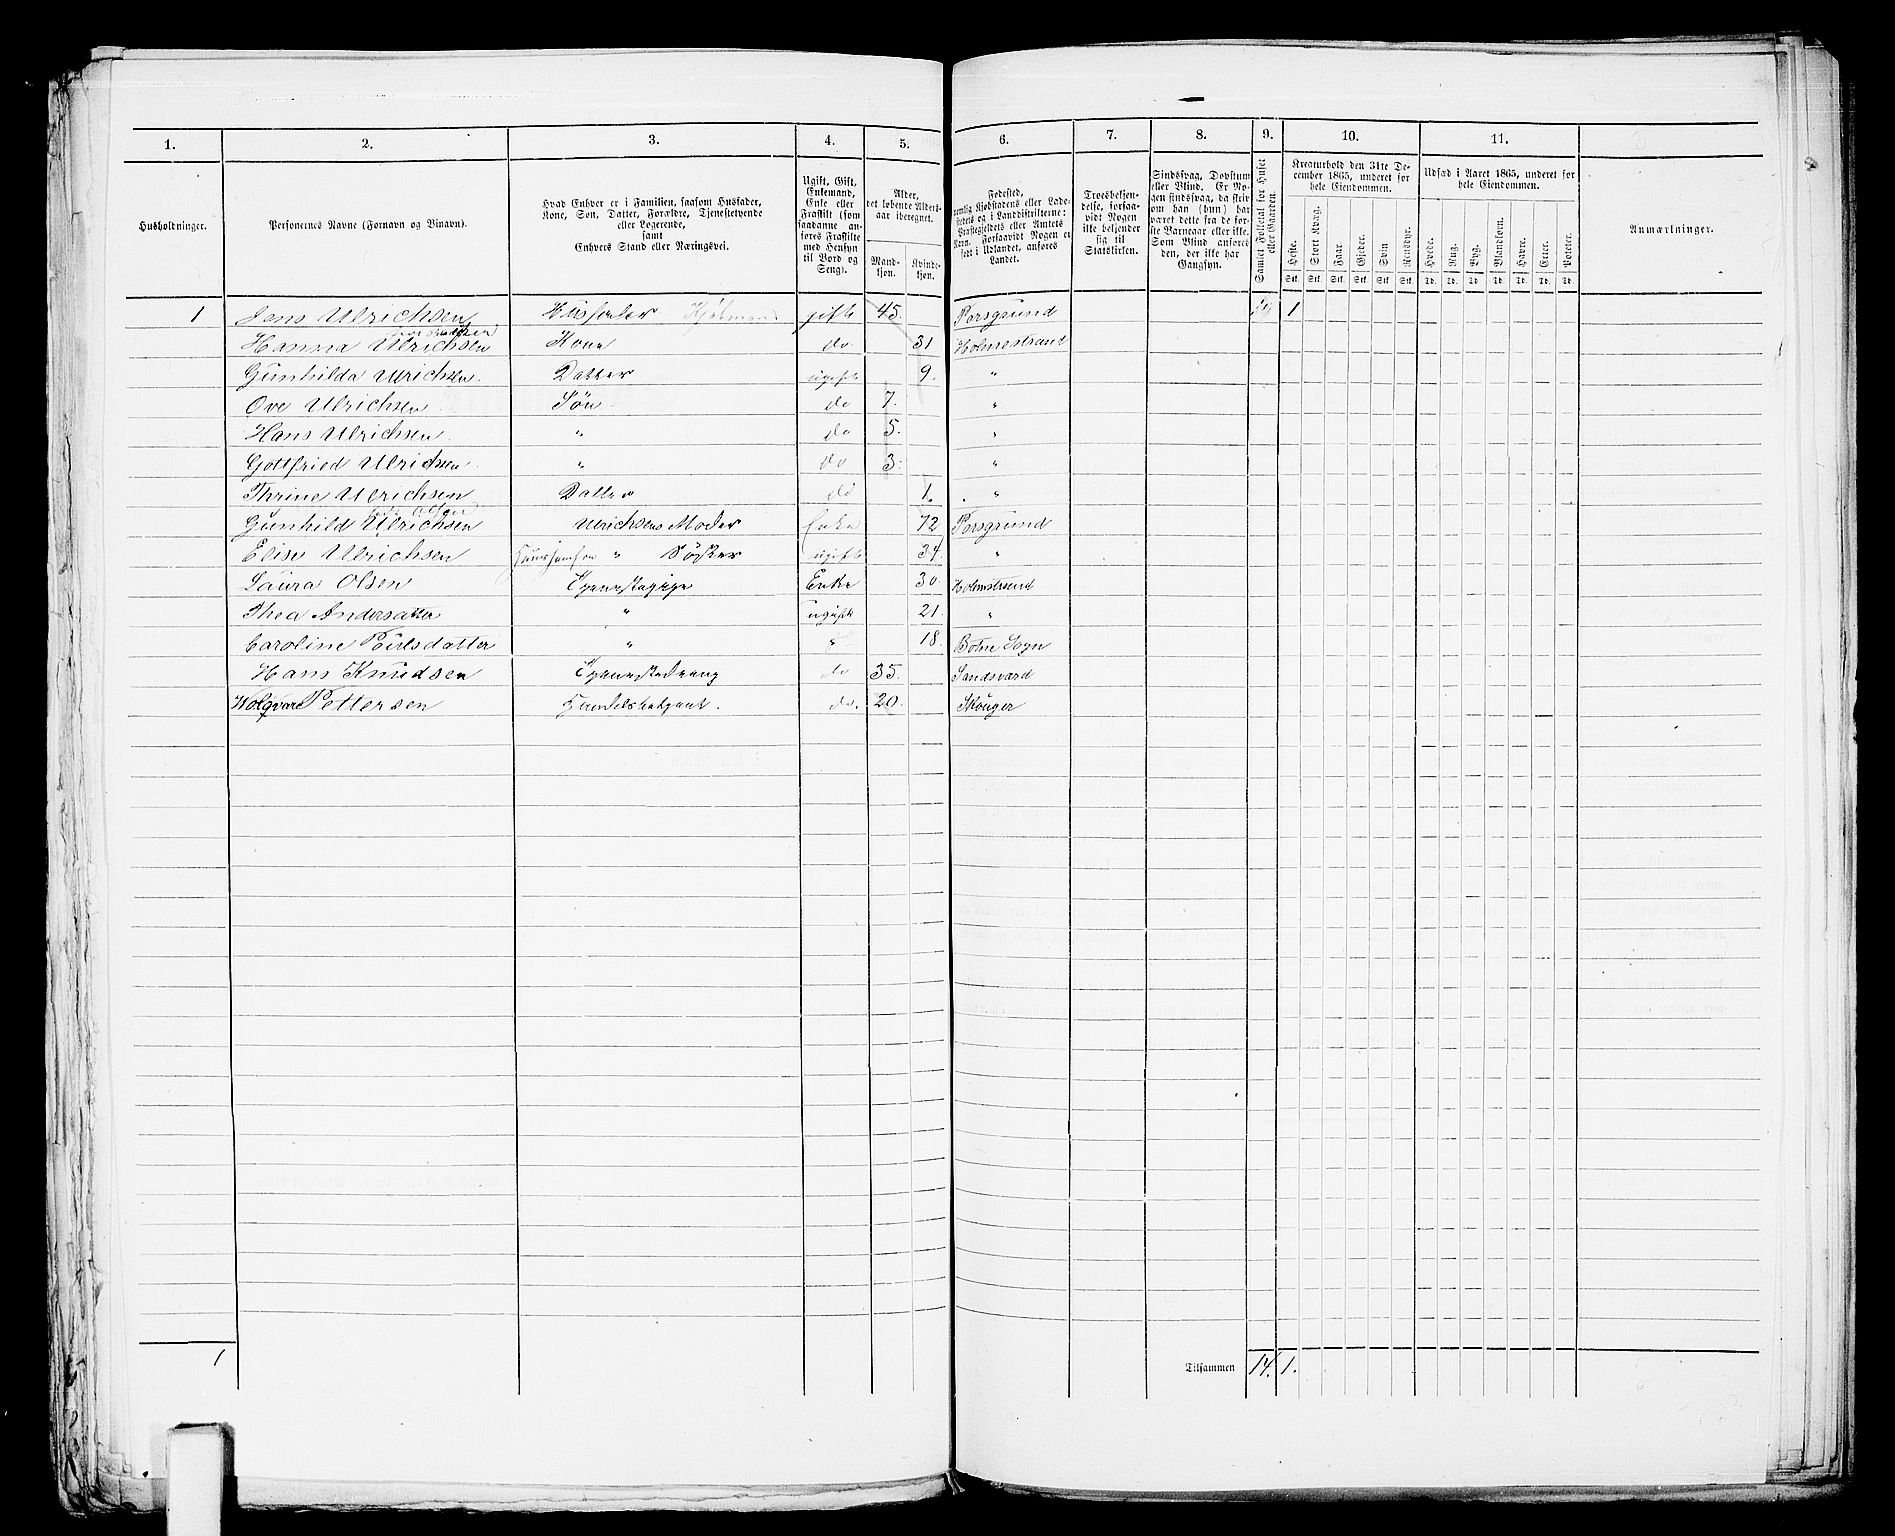 1. 2. 3. 4. 5. 6. 7. 8. 9. 10. 11.
Husholdninger.
Personernes Navne (Fornavn og Binavn).
Hvad Enhver er i Familien, saasom Husfader,
Kone, Søn, Datter, Forældre, Tjenestetyende
eller Logerende,
samt
Enhvers Stand eller Næringsvei.
Ugift, Gift,
Enkemand,
Enke eller
Fraskilt (som
saadanne an-
føres Fraskilte
med Hensyn
til Bord og
Seng).
Alder,
det løbende Alders-
aar iberegnet.
Mand-
kjøn.
Kvinde-
kjøn.
Fødested,
nemlig Kjøbstadens eller Lade-
stedets og i Landdistrikterne:
Præstegjeldets eller Amtets
Navn. Forsaavidt Nogen er
født i Udlandet, anføres
Landet.
Troesbekjen-
delse, forsaa-
vidt Nogen
ikke bekjender
sig til
Statskirken.
Sindssvag, Døvstum
eller Blind. Er No-
gen sindssvag, da skriv
om han (hun) har
været dette fra de før-
ste Barneaar eller ikke.
Som Blind anføres
den, der ikke har
Gangsyn.
Samlet Folketal for Huset
eller Gaarden.
Kreaturhold den 31te De-
cember 1865, underet for
hele Eiendommen.
Heste. Stort Kvæg. Faar. Gjeder. Svin Rensdyr.
Stk. Stk. Stk. Stk. Stk. Stk.
Udsæd i Aaret 1865, underet for
hele Eiendommen.
Hvede. Rug. Byg. Blandkorn. Havre. Erter. Poteter.
Td. Td. Td Td. Td. Td. Td.
Anmærkninger.
1 Jens Ulrichsen Husfader gift 45. Porsgrund 1
Hanna Ulrichsen Kone do 31 Holmestrand
Gunhilda Ulrichsen. Datter ugift 9. "
Ove Ulrichsen Søn. do 7. "
Hans Ulrichsen. " do 5. "
Gottfried Ulrichsen. " do 3. "
Thrine Ulrichsen Datter do 1. "
Gunhild Ulrichsen Ulrichsens Moder Enke 72 Porsgrund
Elise Ulrichsen " Søster ugift 34. "
Laura Olsen Tjenestepige Enke 30. Holmstrand
Thea Andersdatter " ugift 21. "
Caroline " " 18. Botne Sogn
Hans Knudsen Tjenestedreng do 35. Sandsværd
Wolgvare Pettersen Handelsbetjent. do. 20. Skouger
1 Tilsammen 14. 1.